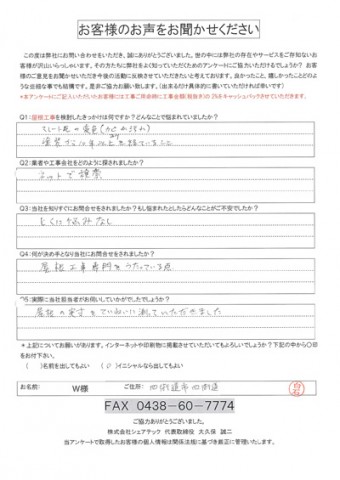 お客様のお声をお聞かせください
この度は弊社にお問い合わせをいただき、誠にありがとうございました。世の中には弊社の存在やサービスをご存知ないお
客様が沢山いらっしゃいます。その方たちに弊社をよく知っていただくためのアンケートにご協力いただけるでしょうか？ お客
様のご意見をお聞かせいただき今後の活動に反映させていきたいと考えております。良かったこと、嬉しかったことどのよ
うな些細な事でも結構です。是非ご協力お願い致します。（出来るだけ具体的に書いていただければ幸いです）
Q1：屋根工事を検討したきっかけは何ですか？どんなことで悩まれていましたか？
スレート瓦の変色
塗装から10年以上を経ていること
Q2：業者や工事会社をどのように探されましたか？
ネットで検索
Q3：当社を知りすぐにお問合せをされましたか？もし悩まれたとしたらどんなことがご不安でしたか？
とくに悩みなし
Q4：何が決め手となり当社にお問合せをされましたか？
屋根工事専門をうたっている点
Q5：実際に当社担当者がお伺いしていかがでしたでしょうか？
屋根の実寸をていねいに測っていただきました
＊上記についてお願いがあります。インターネットや印刷物に掲載させていただいてもよろしいでしょうか？下記の中から〇印
をお付け下さい。
（ ）名前を出してもよい （〇）イニシャルなら出してもよい
お名前： W様 ご住所： 四街道市四街道
FAX 0438-60-7774
ご協力ありがとうございました。
株式会社シェアテック 代表取締役 大久保 誠二
当アンケートで取得したお客様の個人情報は関係法規に基づき厳正に管理いたします。